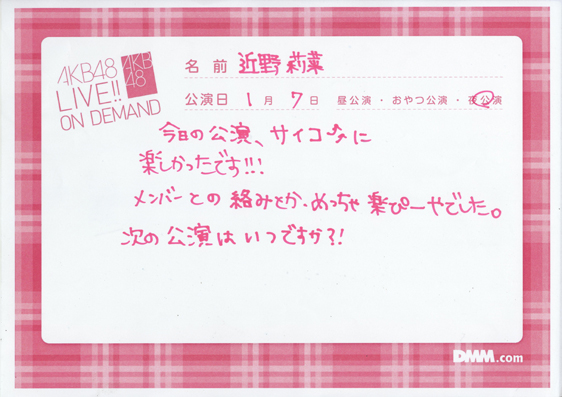 AKB48
LIVE!!
ON DEMAND
AKB
48
名前 近野莉菜
公演日 1月 7日 昼公演・おやつ公演・夜公演
今日の公演、サイコーに
楽しかったです!!!
メンバーとの絡みとか、めっちゃ楽ぴーやでした。
次の公演はいつですか?!
DMM.com